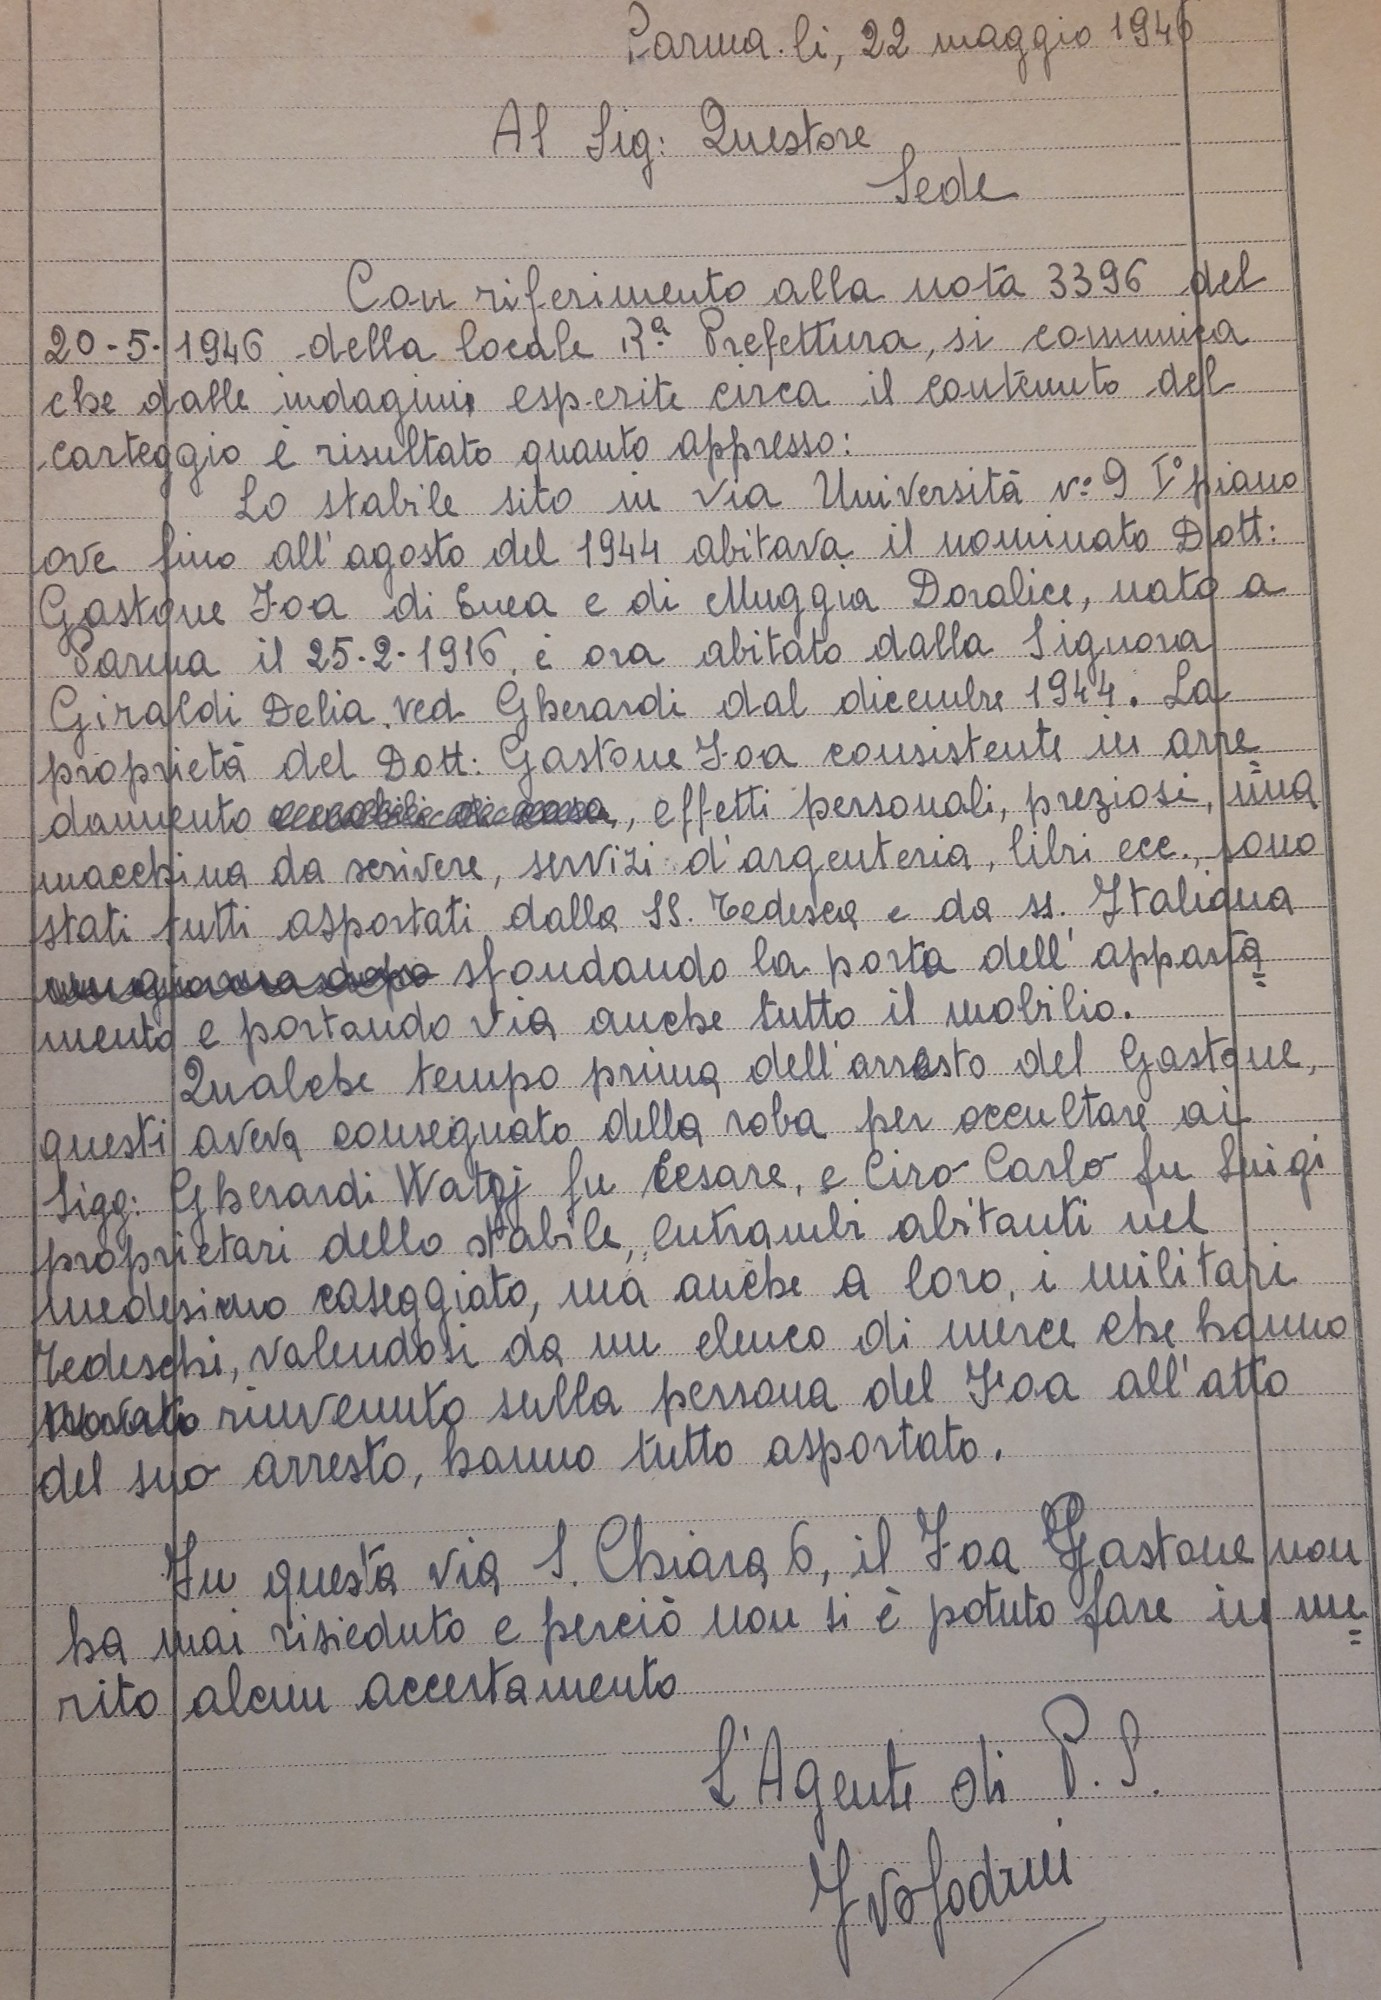 Parma. li, 22 maggio 1946
Al Sig: Questore
Sede
Con riferimento alla nota 3396 del
20-5-1946 della locale R.ª Prefettura, si comunica
che dalle indagini esperite circa il contenuto del
carteggio è risultato quanto appresso:
Lo stabile sito in via Università n° 9 I° piano
ove fino all'agosto del 1944 abitava il nominato Dott:
Gastone Foa di Enea e di Muggia Doralice, nato a
Parma il 25-2-1916, è ora abitato dalla Signora
Giraldi Delia ved Gherardi dal dicembre 1944. La
proprietà del Dott: Gastone Foa consistente in arre
damento mobili di casa, effetti personali, preziosi, una
macchina da scrivere, servizi d'argenteria, libri ecc., sono
stati tutti asportati dalla SS. Tedesca e da ss. Italiana
sfondando la porta dell'apparta=
mento e portando via anche tutto il mobilio.
Qualche tempo prima dell'arresto del Gastone,
questi aveva consegnato della roba per occultare ai
Sigg: Gherardi fu Cesare, e Ciro Carlo fu Luigi
proprietari dello stabile, entrambi abitanti nel
medesimo caseggiato, ma anche a loro, i militari
Tedeschi, valendosi da un elenco di merce che hanno
trovato rinvenuto sulla persona del Foa all'atto
del suo arresto, hanno tutto asportato.
In questa via S. Chiara 6, il Foa Gastone non
ha mai risieduto e perciò non si è potuto fare in me=
rito alcun accertamento
L'Agente di P. S.
Ivo